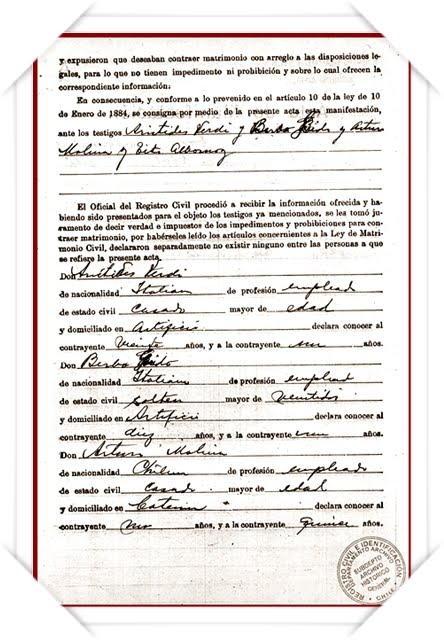 y expusieron que deseaban contraer matrimonio con arreglo a las disposiciones le-
gales, para lo que no tienen impedimento ni prohibición y sobre lo cual ofrecen la
correspondiente información:
En consecuencia, y conforme a lo prevenido en el artículo 10 de la ley de 10
de Enero de 1884, se consigna por medio de la presente acta esta manifestación,
ante los testigos Aristides Verdi y Berba Guido y Arturo
Molina y Tito Albornoz
El Oficial del Registro Civil procedió a recibir la información ofrecida y ha-
biendo sido presentados para el objeto los testigos ya mencionados, se les tomó ju-
ramento de decir verdad e impuestos de los impedimentos y prohibiciones para con-
traer matrimonio, por habérseles leído los artículos concernientes a la Ley de Matri-
monio Civil, declararon separadamente no existir ninguno entre las personas a que
se refiere la presente acta.
Don Aristides Verdi
de nacionalidad Italiana de profesión empleado
de estado civil Casado mayor de edad
y domiciliado en Artificio declara conocer al
contrayente Veinte años, y a la contrayente un años.
Don Berba Guido
de nacionalidad Italiana de profesión empleado
de estado civil soltero mayor de veintidos
y domiciliado en Artificio declara conocer al
contrayente diez años, y a la contrayente un años.
Don Arturo Molina
de nacionalidad Chilena de profesión empleado
de estado civil Casado mayor de edad
y domiciliado en declara conocer al
contrayente uno años, y a la contrayente quince años.
REGISTRO CIVIL E IDENTIFICACION
DEPARTAMENTO ARCHIVO
SUBDEPTO
ARCHIVO
HISTORICO
GENERAL
CHILE